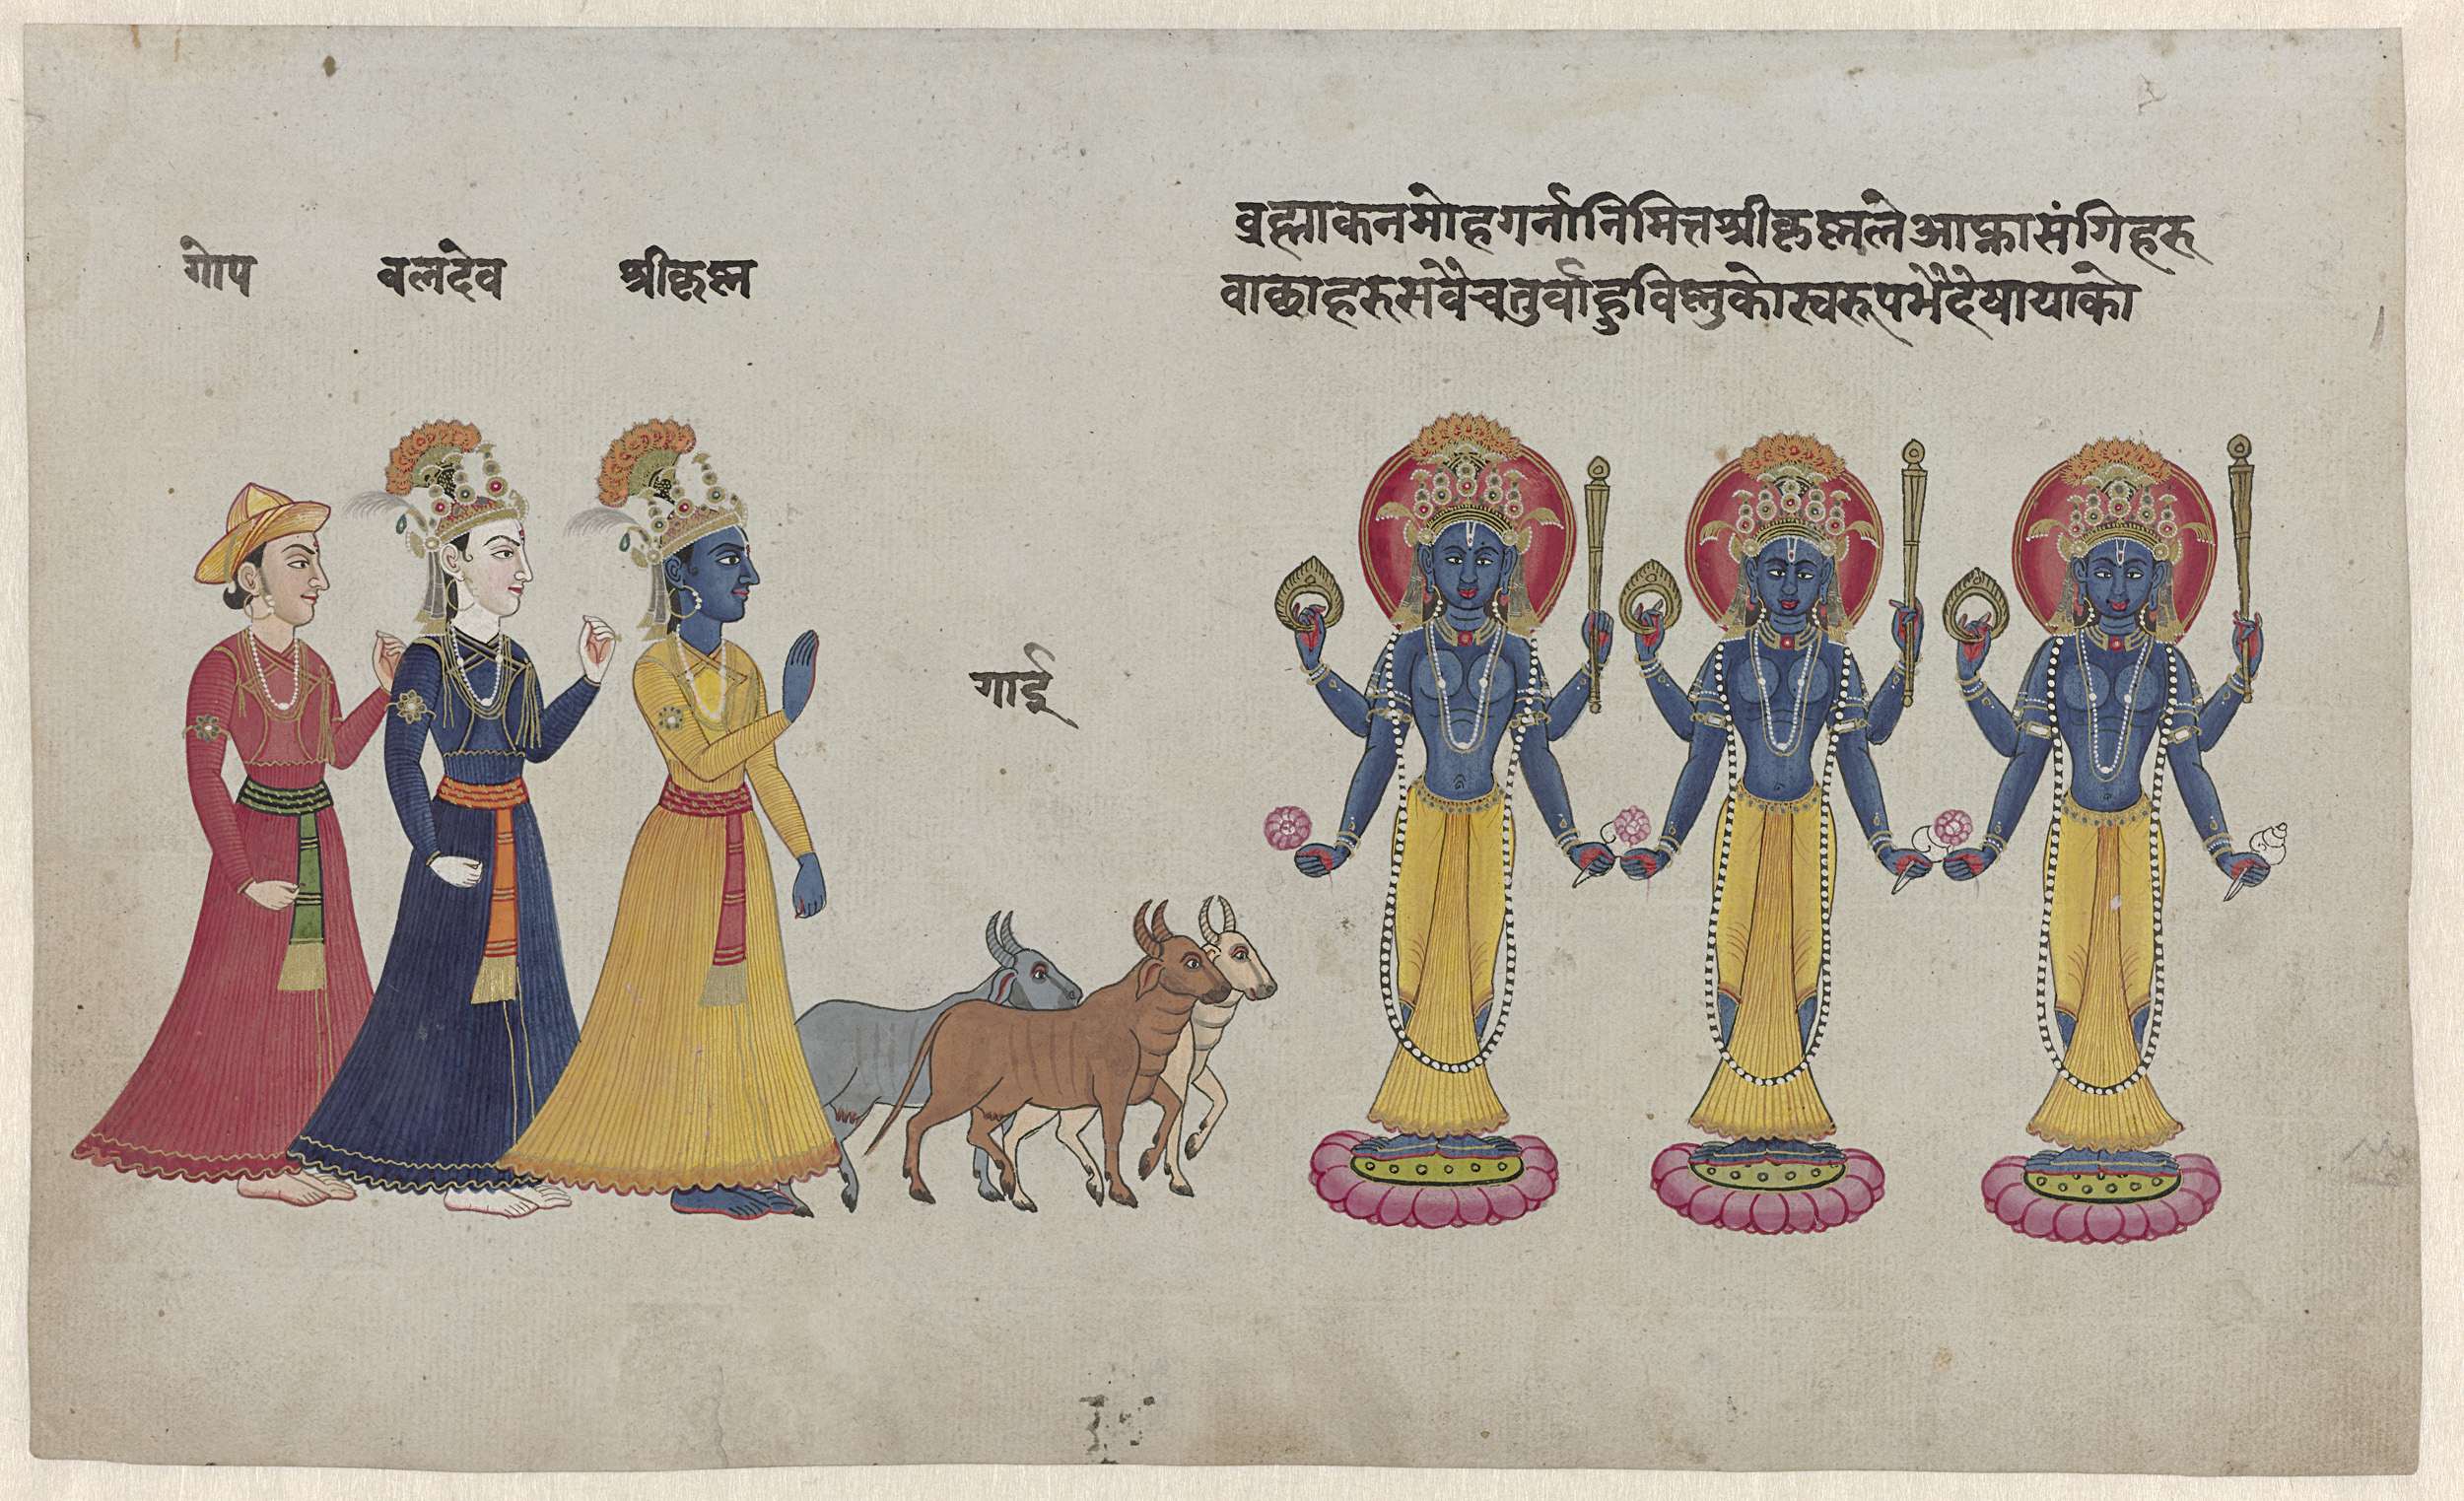 गोप
वलदेव
श्रीकृष्ण
व्रह्माकनमोहगर्नानिमित्तश्रीकृष्णलेआफ्नासंगिहरू
वाछाहरुसवैचतुर्वाहुविष्णुकोस्वरूपभैदेषायाको
गाई